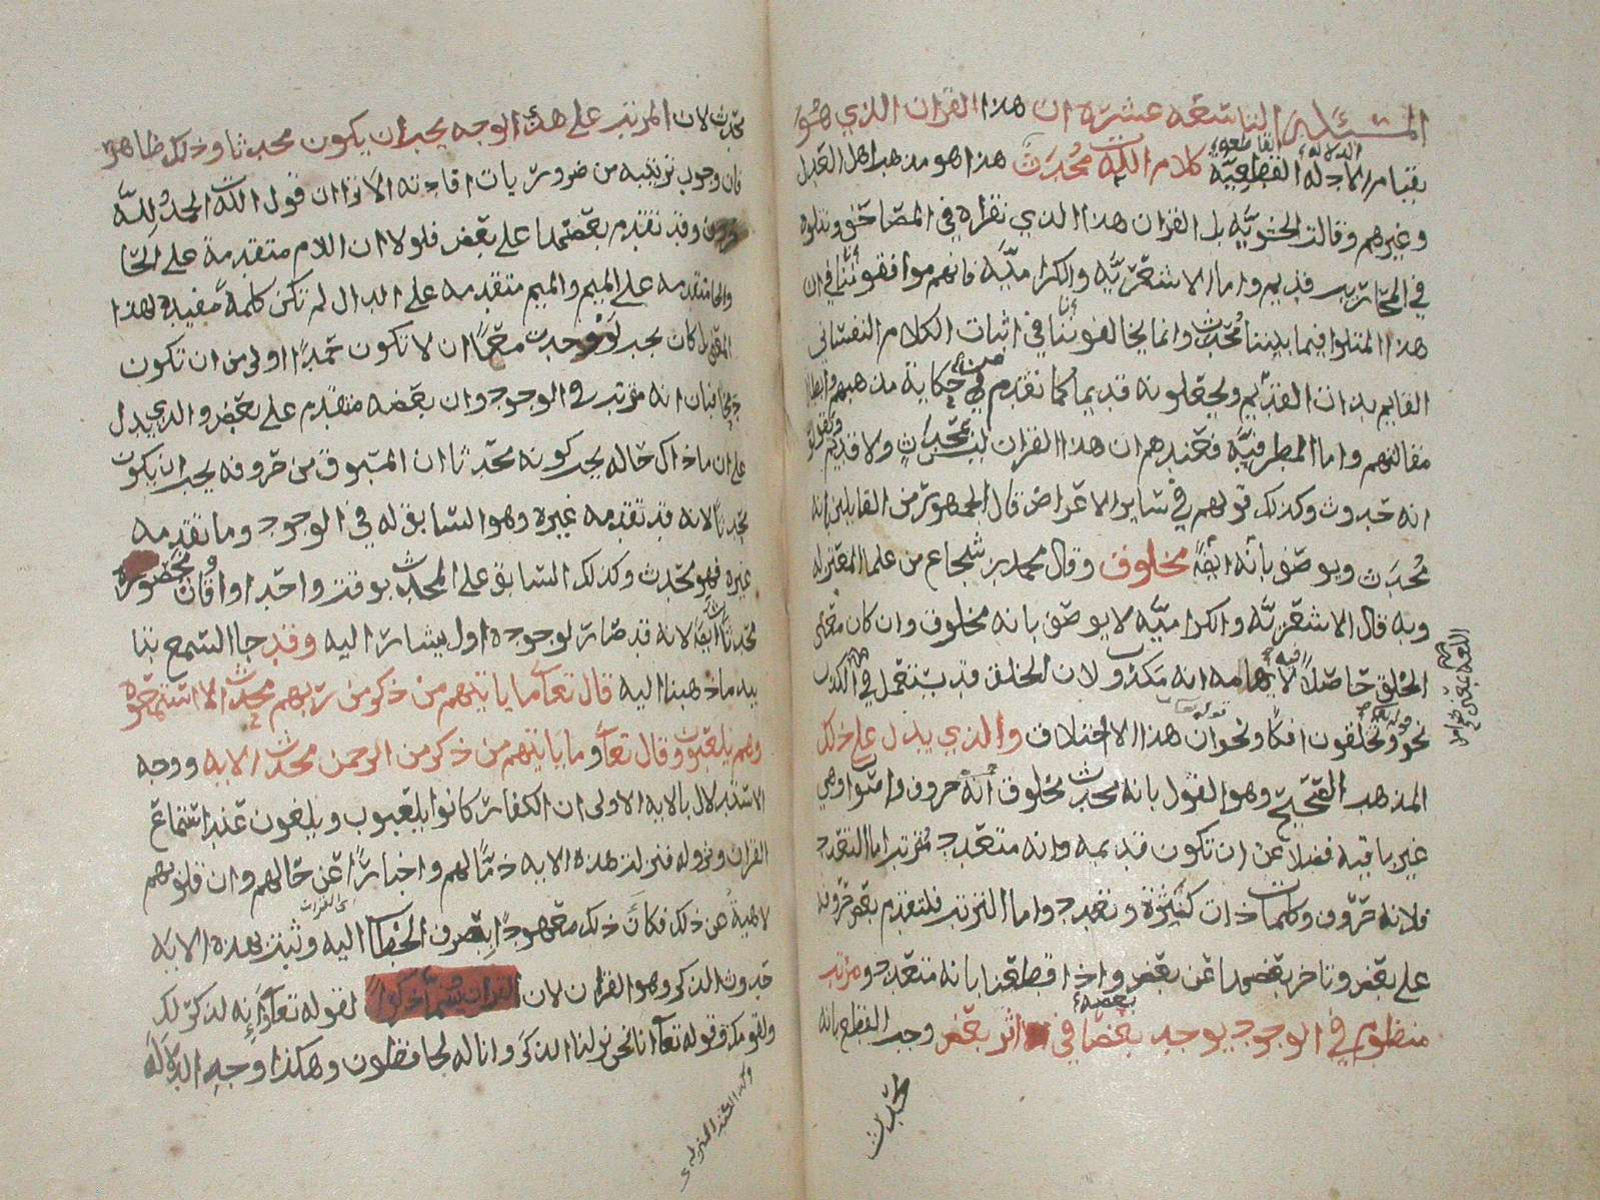 المسئلة التاسعة عشرة ان هذا القران الذي هو
الدلالة القاطعة
بقيام الادلة القطعية كلام الله محدث هذا هو مذهب اهل العدل
وغيرهم وقالت الحشوية بل القران هذا الذي نقراه في المصاحف ونتلوه
في المحاريب قديم واما الاشعرية والكرامية فانهم موافقوننا في ان
هذا المتلوا فيما بيننا محدث وانما يخالفوننا في اثبات الكلام النفساني
القايم بذات القديم ويجعلونه قديما كما تقدم في حكاية مذهبهم وابطال
مقالتهم واما المطرفية فعندهم ان هذا القران ليس بمحدث ولا قديم
انه حدوث وكذلك قولهم في سائر الاعراض قال الجمهور من القايلين بانه
محدث ويوصف بأنه ايضا مخلوق وقال محمد بن شجاع من علما المعتزله
وبه قال الاشعرية والكرامية لا يوصف بانه مخلوق وان كان معنى
الخلق حاصلا فيه لايهامه انه مكذوب لان الخلق قد يستعمل في الكذب
نحو وتخلقون افكا ونحو ان هذا الا اختلاق والذي يدل على ذلك
المذهب الصحيح وهو القول بانه محدث مخلوق انه حروف واصوات وهي
غير باقيه فضلا عن ان تكون قديمه وانه متعدد مترتب اما التعدد
فلانه حروف وكلمات ذات كثرة وتعدد واما الترتب فلتقدم بعض حروفه
على بعض وتاخر بعضها عن بعض واذا قطعنا بانه متعدد ومرتب
منظوم في الوجود يوجد بعضا في اثر بعض وجب القطع بانه
بعضه
محدث
محدث لان المرتب على هذا الوجه يجب ان يكون محدثا وذلك ظاهر
فان وجوب ترتيبه من ضروريات افادته الا ترا ان قول الله الحمد لله
حروف وقد تقدم بعضها على بعض فلولا ان اللام متقدمة على الحا
والحا متقدمه على الميم والميم متقدمه على الدال لم تكن كلمة مفيدة لهذا
المعنى بل كان يجب لو وجدت معا ان لا تكون حمدا اولى من ان تكون
فبان انه مرتب في الوجود وان بعضه متقدم على بعض والذي يدل
على ان ماذاك حاله يجب كونه محدثا ان المسبوق من حروفه يجب ان يكون
محدثا لانه قد تقدمه غيره وهو السابق له في الوجود وما تقدمه
غيره فهو محدث وكذلك السابق على المحدث بوقت واحد او اوقات محصورة
محدثا ايضا لانه قد صار لوجوده اول يشار اليه وقد جا السمع بتا
ييد ماذهبنا اليه قال تعالى ما ياتيهم من ذكر من ربهم محدث الا استمعوه
وهم يلعبون وقال تعالى وما ياتيهم من ذكر من الرحمن محدث الايه ووجه
الاستدلال بالايه الاولى ان الكفار كانوا يلعبون ويلغون عند استماع
القران ونزوله فنزلت هذه الايه ذما لهم واخبارا عن حالهم وان قلوبهم
لاهية عن ذلك فكان ذلك معهودا ينصرف الخطاب اليه وثبت بهذه الايه
حدوث الذكر وهو القران لان القران يسما ذكرا لقوله تعالى وانه لذكر لك
ولقومك وقوله تعالى انا نحن نزلنا الذكر وانا له لحافظون وهكذا وجه الدلاله